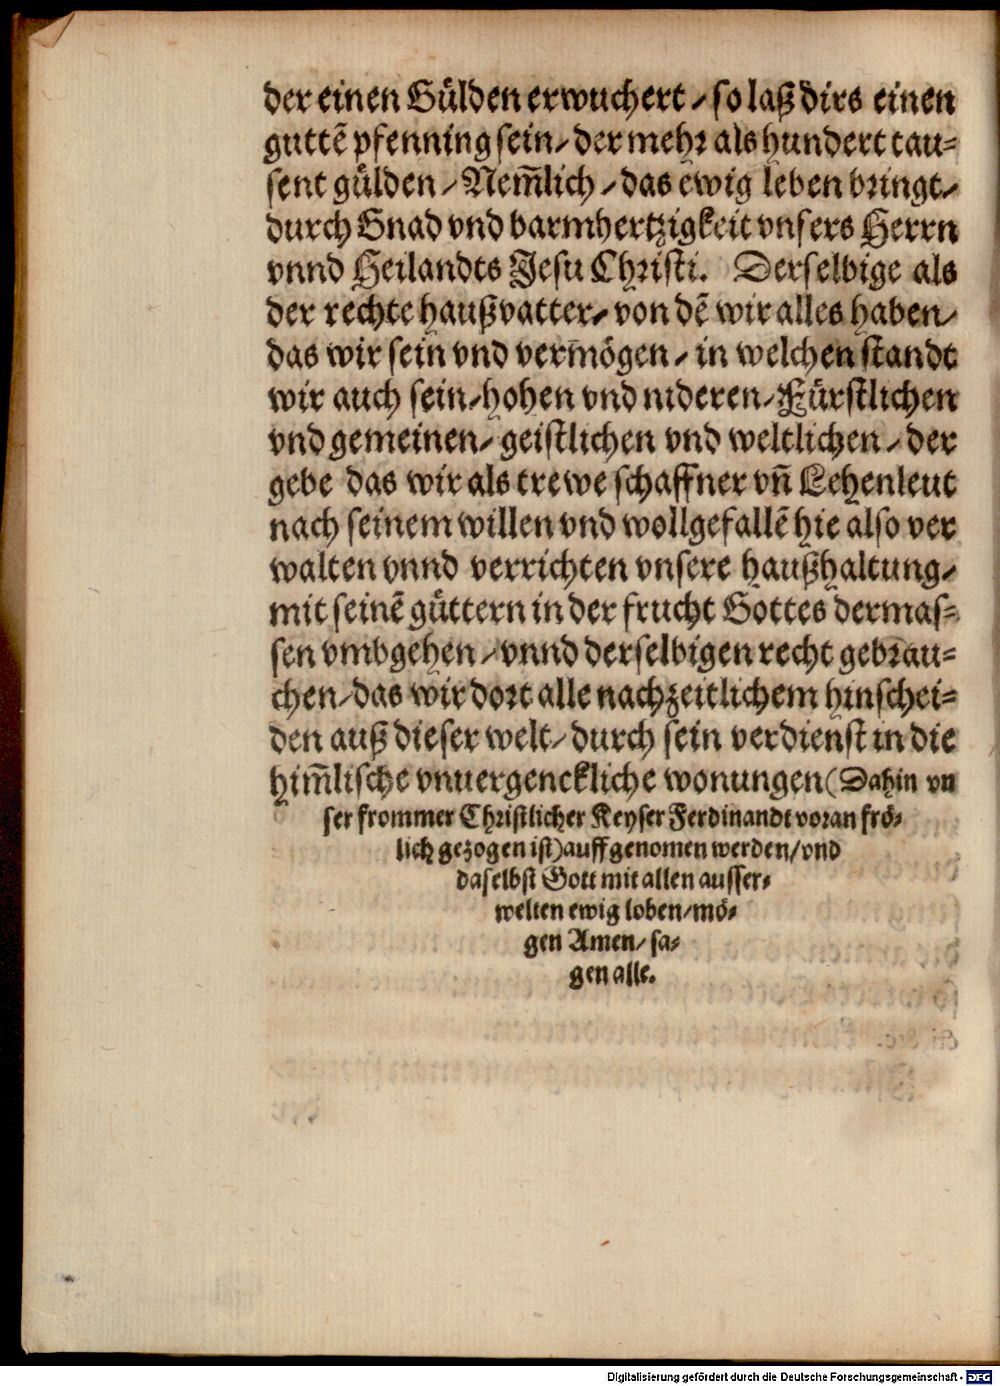 der einen Gülden erwuchert / so laß dirs einen
guttē pfenning sein / der mehr als hundert tau=
sent gülden / Nem̄lich / das ewig leben bringt /
durch Gnad vnd barmhertzigkeit vnsers Herrn
vnnd Heilandts Jesu Christi. Derselbige als
der rechte haußvatter / von dē wir alles haben /
das wir sein vnd vermögen / in welchen standt
wir auch sein / hohen vnd nideren / Fürstlichen
vnd gemeinen / geistlichen vnd weltlichen / der
gebe das wir als trewe schaffner vn̄ Lehenleut
nach seinem willen vnd wollgefallē hie also ver
walten vnnd verrichten vnsere haußhaltung /
mit seinē güttern in der frucht Gottes dermas=
sen vmbgehen / vnnd derselbigen recht gebrau=
chen / das wir dort alle nach zeitlichem hinschei=
den auß dieser welt / durch sein verdienst in die
him̄lische vnuergenckliche wonungen (Dahin vn
ser frommer Christlicher Keyser Ferdinandt voran frö=
lich gezogen ist) auffgenomen werden / vnd
daselbst Gott mit allen ausser=
welten ewig loben / mö=
gen Amen / sa=
gen alle.
Digitalisierung gefördert durch die Deutsche Forschungsgemeinschaft - DFG